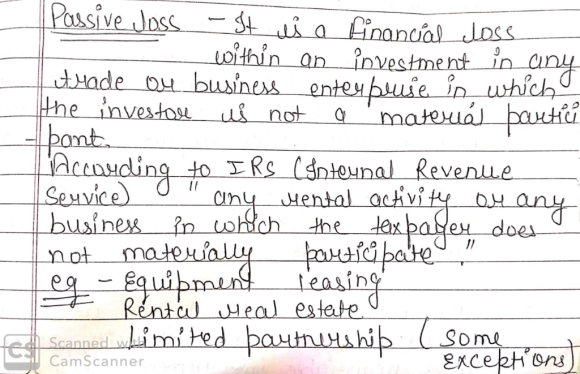 Passive loss - It is a financial loss
within an investment in any
trade or business enterpruise in which
the investor is not a material partici
- pant.
According to IRS (Internal Revenue
Service) " any rental activity or any
business in which the taxpayer does
not materially participate."
eg - Equipment leasing
Rental real estate
Limited partnership ( some
exceptions)
CS Scanned with
CamScanner